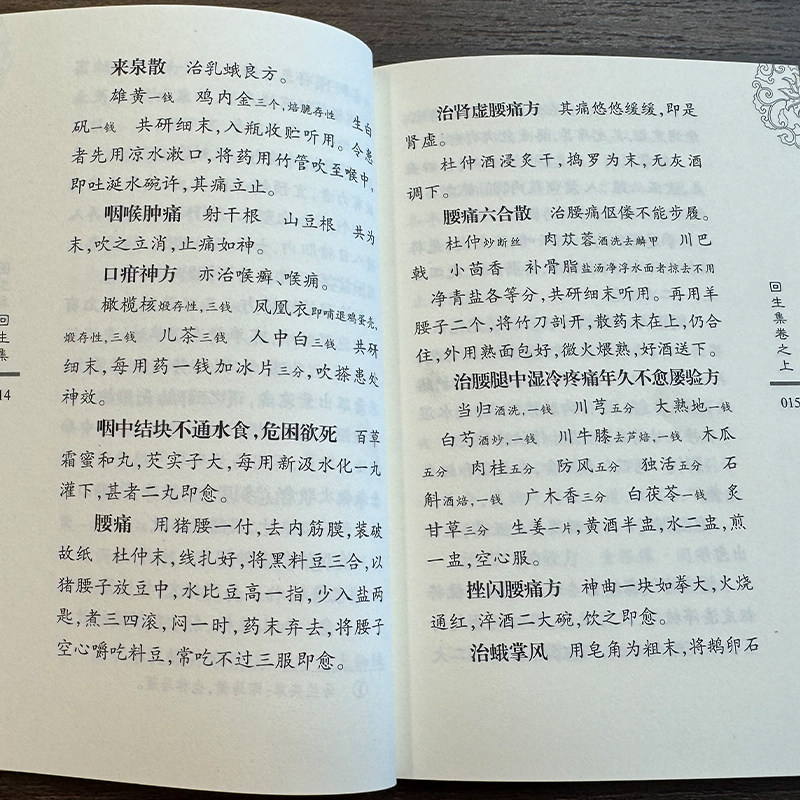 来泉散 治乳蛾良方。
雄黄一钱 鸡内金三个,焙脆存性 生白
矾一钱 共研细末,入瓶收贮听用。令患
者先用凉水漱口,将药用竹管吹至喉中,
即吐涎水碗许,其痛立止。
咽喉肿痛 射干根 山豆根 共为
末,吹之立消,止痛如神。
口疳神方 亦治喉癣、喉痈。
橄榄核煅存性,三钱 凤凰衣即哺退鸡蛋壳,
煅存性,三钱 儿茶三钱 人中白三钱 共研
细末,每用药一钱加冰片三分,吹搽患处
神效。
咽中结块不通水食,危困欲死 百草
霜蜜和丸,芡实子大,每用新汲水化一丸
灌下,甚者二丸即愈。
腰痛 用猪腰一付,去内筋膜,装破
故纸 杜仲末,线扎好,将黑料豆三合,以
猪腰子放豆中,水比豆高一指,少入盐两
匙,煮三四滚,闷一时,药末弃去,将腰子
空心嚼吃料豆,常吃不过三服即愈。
回生集
14
治肾虚腰痛方 其痛悠悠缓缓,即是
肾虚。
杜仲酒浸炙干,捣罗为末,无灰酒
调下。
腰痛六合散 治腰痛伛偻不能步履。
杜仲炒断丝 肉苁蓉酒洗去麟甲 川巴
戟 小茴香 补骨脂盐汤净浮水面者掠去不用
净青盐各等分,共研细末听用。再用羊
腰子二个,将竹刀剖开,散药末在上,仍合
住,外用熟面包好,微火煨熟,好酒送下。
治腰腿中湿冷疼痛年久不愈屡验方
当归酒洗,一钱 川芎五分 大熟地一钱
白芍酒炒,一钱 川牛膝去芦焙,一钱 木瓜
五分 肉桂五分 防风五分 独活五分 石
斛酒焙,一钱 广木香三分 白茯苓一钱 炙
甘草三分 生姜一片,黄酒半盅,水二盅,煎
一盅,空心服。
挫闪腰痛方 神曲一块如拳大,火烧
通红,淬酒二大碗,饮之即愈。
治蛾掌风 用皂角为粗末,将鹅卵石
回生集卷之上
015